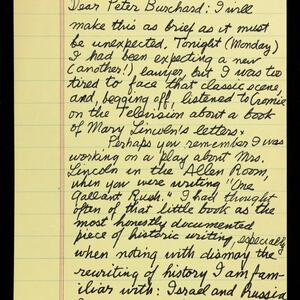 Dear Peter Burchard: I will
make this as brief as it must
be unexpected. Tonight (Monday)
I had been expecting a new
(another!) lawyer, but I was too
tired to face that classic scene,
and, begging off, listened to Cromie
on the Television about a book
of Mary Lincoln's letters.
Perhaps you remember I was
working on a play about Mrs.
Lincoln in the "Allen Room,
when you were writing "One
Gallant Rush." I had thought
often of that little book as the
most honestly documented
piece of historic writing, especially
when noting with dismay the
rewriting of history I am fam-
iliar with: Israel and Russia